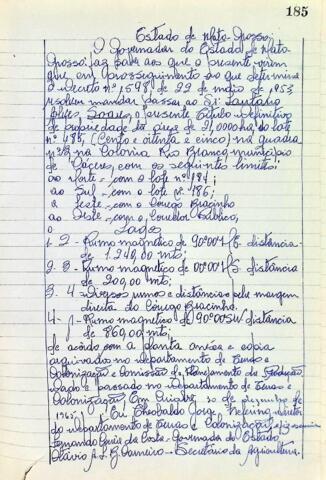 185
Estado de Mato Grosso:
O Governador do Estado de Mato
Grosso: faz para aos que o presente virem
que em prosseguimento ao que determina
o Decreto nº 1598, de 22 de maio de 1953
resolveu mandar passar ao Sr:
Soares, o presente titulo definitivo
de propriedade da área de 21,0000 ha, do lote
nº 185, (Cento e oitenta e cinco) na quadra
na Colonia Rio Branco, municipio
de Cáceres, com os seguintes limites:
ao Norte - com o lote nº 184;
ao Sul - com o lote nº 186;
a Leste - com o Corego Bracinho
ao Oeste - com o Corredor Público,
o Lados
1 - 2 - Rumo magnetico de 90º00' E distância
de 1.240,00 mts;
2 - 3 - Rumo magnetico de 00º00' S distância
de 200,00 mts;
3 - 4 - Diversos rumos e distâncias pela margem
direita do Corego Bracinho.
4 - 1 - Rumo magnetico de 90º00' SW distância
de 860,00 mts;
de acordo com a planta anexa e copia
arquivadas no departamento de terras e
Colonização e Comissão de Planejamento da Produção.
Dado e passado no departamento de terras e
Colonização, Em Cuiabá, 30 de dezembro de
1965. Eu Theobaldo Jorge diretor
do departamento de terras e Colonização,
Fernando Corrêa da Costa - Governador do Estado
Otávio - Secretário da Agricultura.